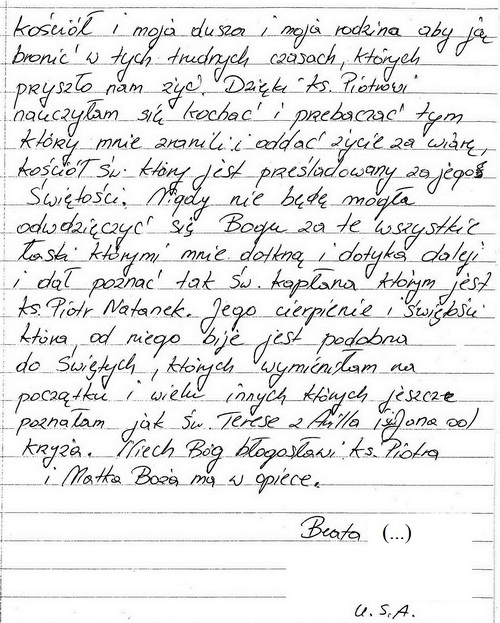 kościół i moja dusza i moja rodzina aby ją
bronić w tych trudnych czasach, których
pryszło nam żyć. Dzięki ks. Piotrowi
nauczyłam się kochać i przebaczać tym
który mnie zranili i oddać życie za wiarę,
kościół św. który jest prześladowany za jego
Świętości. Nigdy nie będę mogła
odwdzięczyć się Bogu za te wszystkie
łaski którymi mnie dotkną i dotyka dalej
i dał poznać tak Św. kapłana którym jest
ks. Piotr Natanek. Jego cierpienie i świętość
która od niego bije jest podobna
do Świętych, których wymieniłam na
początku i wielu innych których jeszcze
poznałam jak Św. Terese z Avilla i Jana od
krzyża. Niech Bóg błogosławi ks. Piotra
i Matka Boża ma w opiece.
Beata (...)
U.S.A.